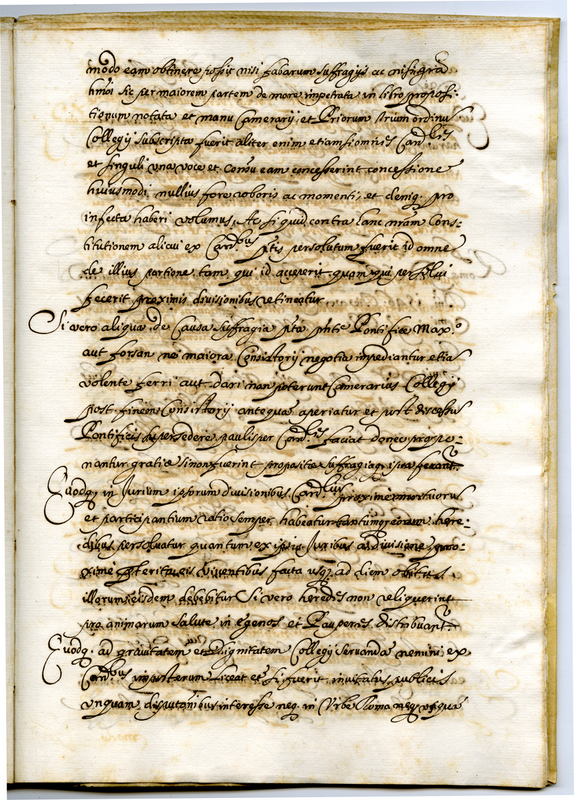 modo eam obtinere possit nisi fabarum suffragijs ac nisi gratia
hmoi sic per maiorem partem de more impetrata in libro proposi-
tionum notata et manu Camerarij, et Priorum trium ordinũ
Collegij subscripta fuerit aliter enim etiam si omnes Card.les
et singuli una voce et eam concesserint concessione
huiusmodi nullius fore roboris ac momenti, et deniq. pro
infecta haberi volumus, Ac si quid contra hanc nrãm Cons-
titutionem alicui ex Card.bus ptis persolutum fuerit id omne
de illius portione tam qui id acceperit quam qui persolui
fecerit proximis diuisionibus retineatur.
Si vero aliqua de Causa suffragia pta pñte Pontifice Max.o
aut forsan ne maiora Consistorij negotia impediantur etiã
volente ferri aut dari non poterunt Camerarius Collegij
post finem Consistorij antequã aperiatur et post discessũ
Pontificis supersedere paulisper Card.les faciat donec propo-
nantur gratiæ si non fuerint propositæ suffragiaq. ipsa ferant.r
Eaq. in Jurium ipsorum diuisionibus Card.lium proxime mortuorũ
et participantium ratio semper habeatur tantumq. eorum here-
dibus persoluatur quantum ex ipsis Juribus a diuisione pro-
xime præterita eis viventibus facta usq. ad diem obitus
illorum eisdem debebitur Si vero heredes non reliquerint
pro animarum salute in egenos et Pauperes distribuant.r
Euodq. ad grauitatem et dignitatem Collegij seruanda nemini ex
Card.bus imposterum liceat et si fuerit inuitatus publicis
unquam interesse neq. in Urbe Roma neq. usquã